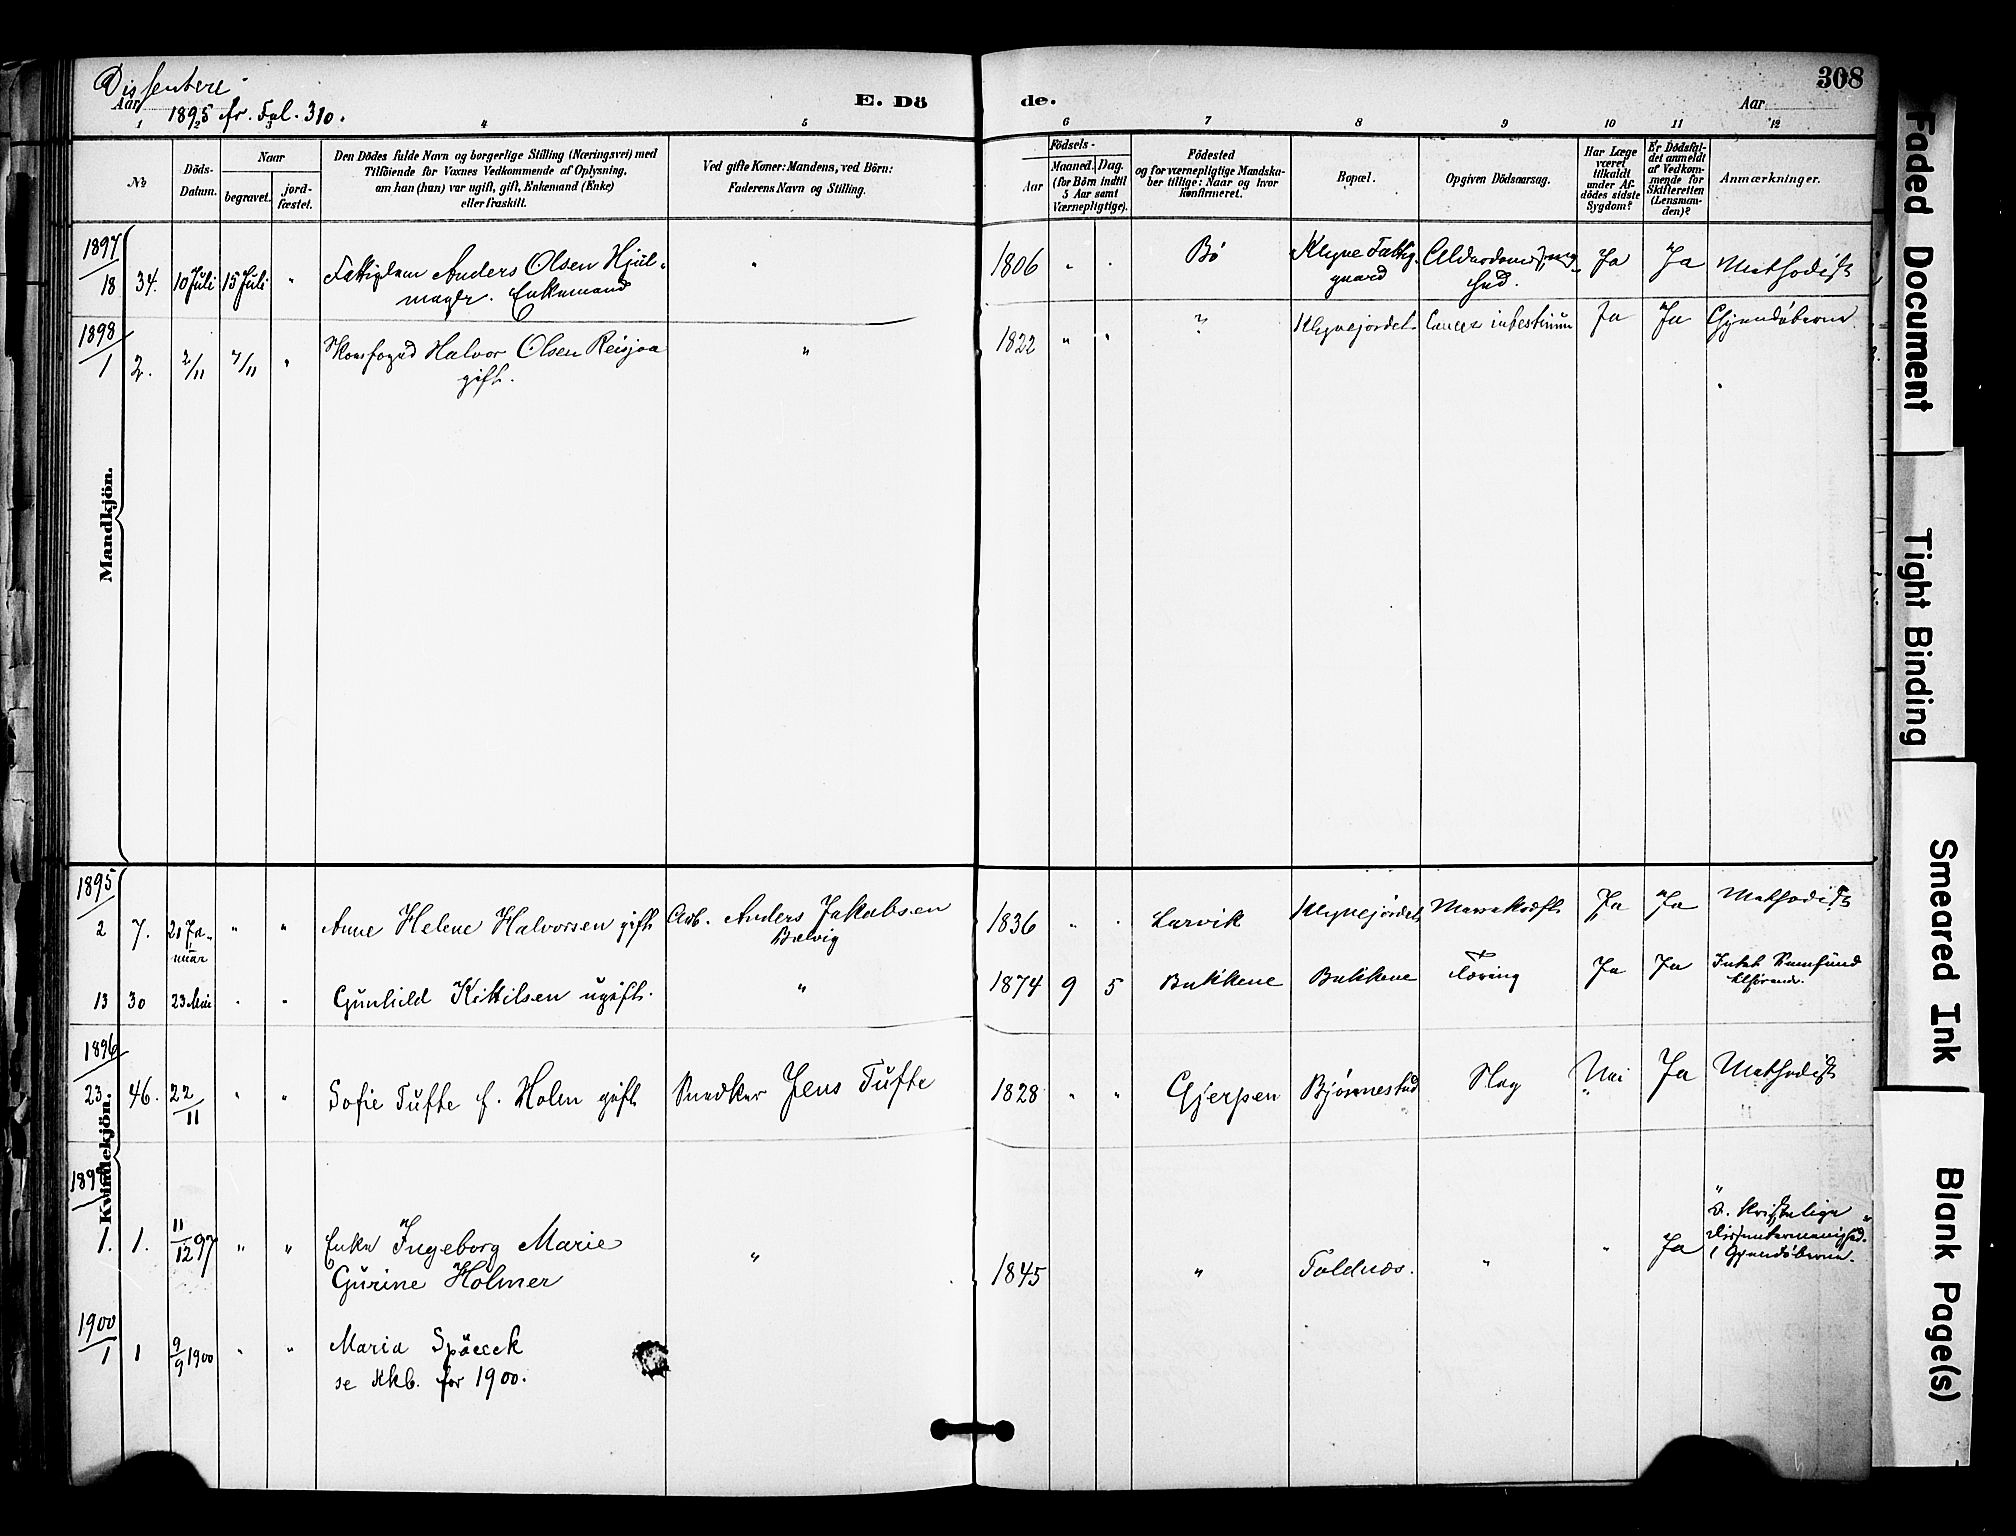 Dissentere
Aar 1895 fr. Fol. 310.
E. Dö
de.
Aar
308
1 2 3 4 5 6 7 8 9 10 11 12
No
Döds-Datum.
Naar
begravet.
jord-fæstet.
Den Dödes fulde Navn og borgerlige Stilling (Næringsvei) med
Tilföiende for Voxnes Vedkommende af Oplysning.
om han (hun) var ugift, gift, Enkemand (Enke)
eller fraskilt.
Ved gifte Koner: Mandens, ved Börn:
Faderens Navn og Stilling.
Födsels-
Aar
Maaned. Dag.
(for Börn indtil
5 Aar samt
Værnepligtige).
Födested
og for værnepligtige Mandska-
ber tillige: Naar og hvor
konfirmeret.
Bopæl.
Opgiven Dödsaarsag.
Har Læge
været
tilkaldt
under Af-
dödes sidste
Sygdom?
Er Dödsfal-
det anmeldt
af Vedkom-
mende for
Skifteretten
(Lensman-
den)?
Anmærkninger.
Mandkjön.
1897
18 34. 10 Juli 15 Juli " Fattiglem Anders Olsen Hjul-
mager. Enkemand
" 1806 " " Bö Klyve Fattig-
gaard
Ja Ja Methodist
1898
1 2. 2/11 7/11 " Halvor Olsen Reisjaa
gift.
" 1822 " " ? Klyvejordet. Cancer intestinum Ja Ja
Kvindekjön.
1895
2 7. 21 Ja-
nuar
" " Anne Helene Halvorsen gift Arb. Anders Jakobsen
Bælvig
1836 " " Larvik Klyvejordet Mavekræft Ja Ja Methodist
13 30 23 Mai " " Gunhild Kittilsen ugift. " 1874 9 5 Bukkene Bukkene Tæring Ja Ja Intet Samfund
tilhörende.
1896
23 46. 22/11 " " Sofie Tufte f. Holm gift Snedker Jens Tufte 1828 " " Gjerpen Bjørnestad Slag Nei Ja Methodist
1. 1. 11/12 97 " " Enke Ingeborg Marie
Gurine Holmer
" 1845 " Foldnæs. " " Ja
"d. kristelige
Dissentermenighed"
1900
1 1 9/9 1900 " " Maria
se Kkb. for 1900.
Faded Document
Tight Binding
Smeared Ink
Blank Page(s)